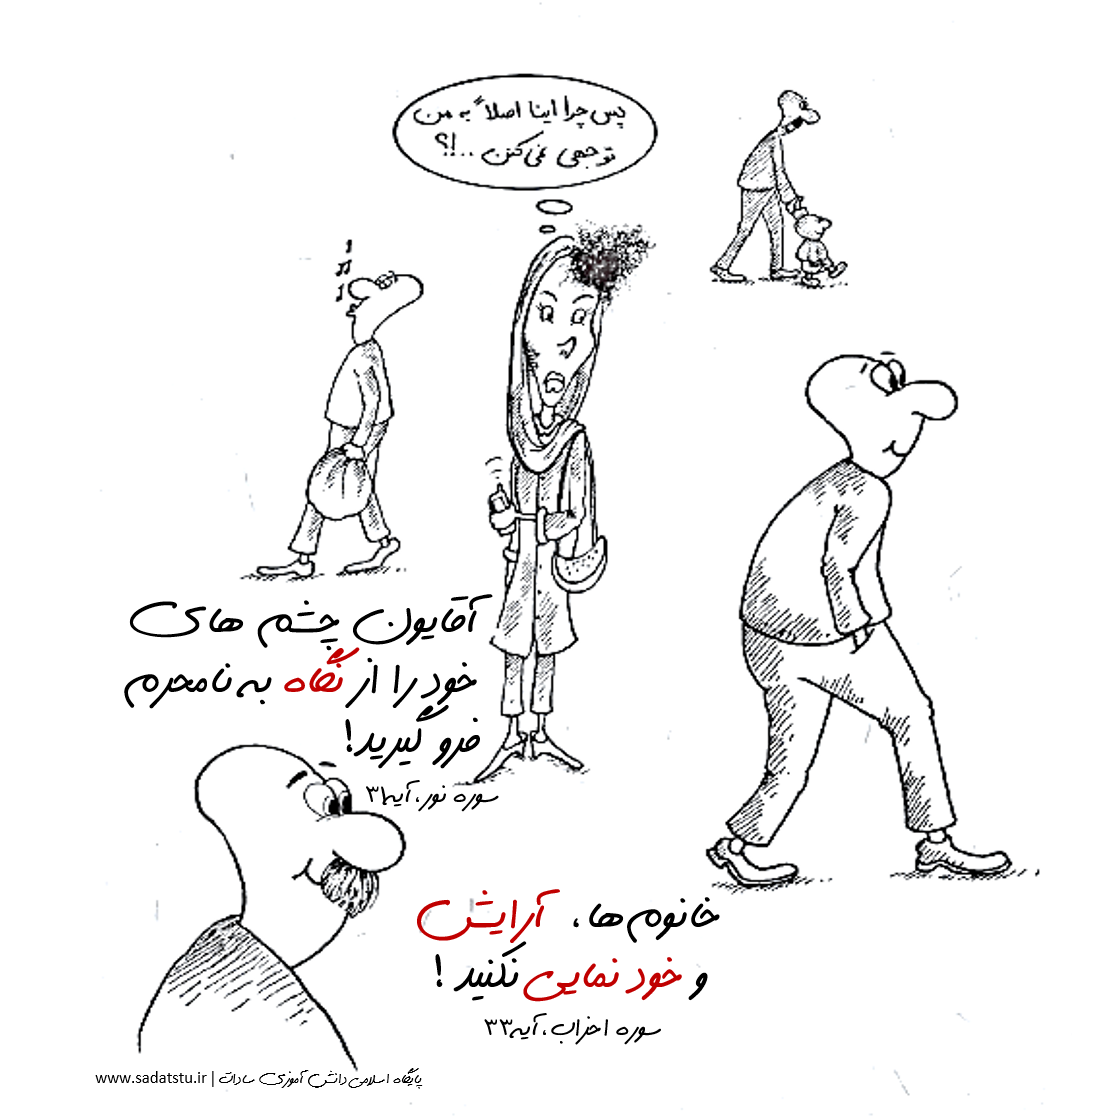 پس چرا اینا اصلاً به من
توجهی نمی‌کنن ..!؟
آقایون چشم های
خود را از نگاه به نامحرم
فرو گیرید!
سوره نور، آیه۳۱
خانوم ها، آرایش
و خود نمایی نکنید !
سوره احزاب، آیه۳۳
پایگاه اسلامی دانش آموزی سادات | www.sadatstu.ir